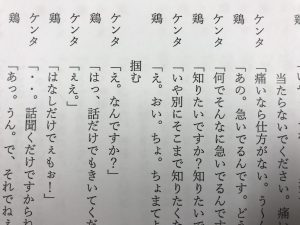 鶏
当たらないでください。痛い
ケンタ 「痛いなら仕方がない。う〜
鶏 「あの。急いでるんです。どう
ケンタ 「何でそんなに急いでるんです
鶏 「知りたいですか?知りたいで
ケンタ 「いや別にそこまで知りたくな
鶏 「え。おい。ちょ。ちょまてよ
掴む
ケンタ 「え。なんですか?」
鶏 「はっ、話だけでもきいてくだ
ケンタ 「ぇえ。」
鶏 「はなしだけでぇもぉ!」
ケンタ 「・・。話聞くだけですからね
鶏 「あっ。うん。で、それでねぇ